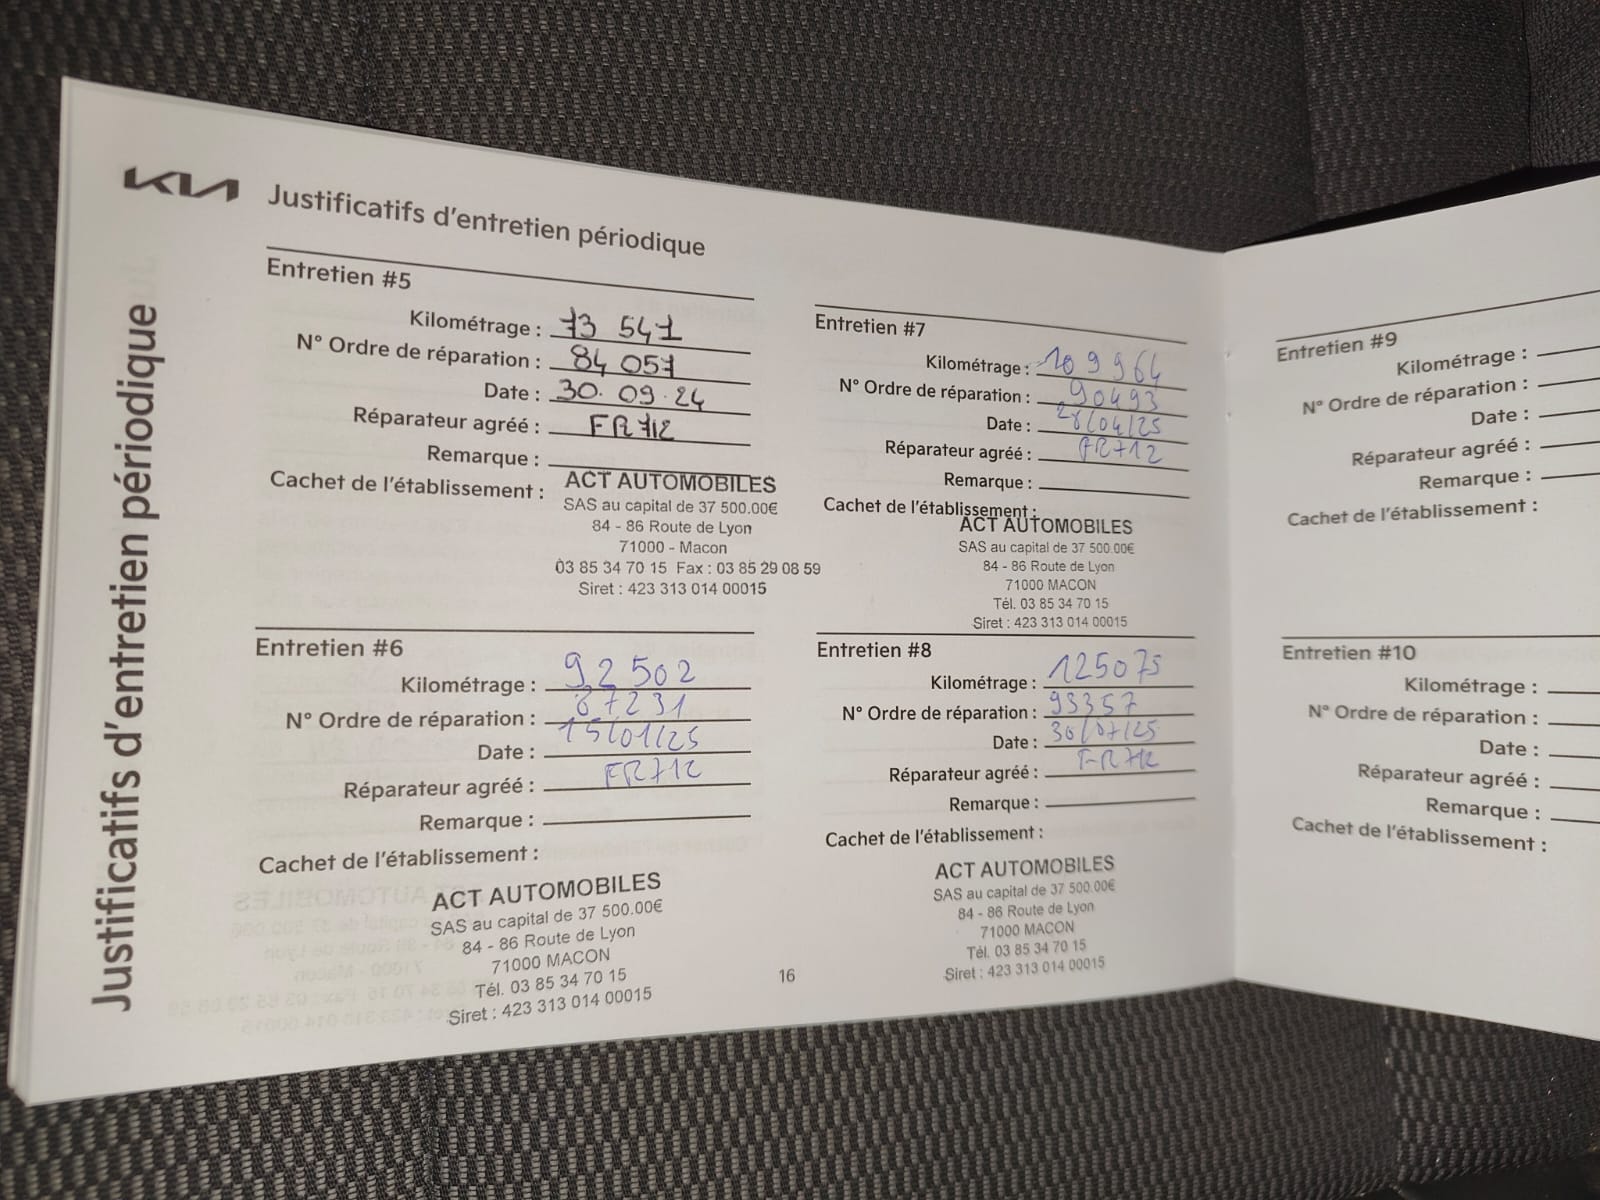 KIA
Justificatifs d'entretien périodique
Justificatifs d'entretien périodique
Entretien #5
Kilométrage : 73 541
N° Ordre de réparation : 84 057
Date : 30.09.24
Réparateur agréé : FR712
Remarque :
Cachet de l'établissement :
ACT AUTOMOBILES
SAS au capital de 37 500.00€
84 - 86 Route de Lyon
71000 - Macon
03 85 34 70 15 Fax : 03 85 29 08 59
Siret : 423 313 014 00015
Entretien #6
Kilométrage : 92 502
N° Ordre de réparation : 87231
Date : 15/01/25
Réparateur agréé : FR712
Remarque :
Cachet de l'établissement :
ACT AUTOMOBILES
SAS au capital de 37 500.00€
84 - 86 Route de Lyon
71000 MACON
Tél. 03 85 34 70 15
Siret : 423 313 014 00015
Entretien #7
Kilométrage : 109 964
N° Ordre de réparation : 90493
Date : 28/04/25
Réparateur agréé : FR712
Remarque :
Cachet de l'établissement :
ACT AUTOMOBILES
SAS au capital de 37 500.00€
84 - 86 Route de Lyon
71000 MACON
Tél. 03 85 34 70 15
Siret : 423 313 014 00015
Entretien #8
Kilométrage : 125075
N° Ordre de réparation : 93357
Date : 30/07/25
Réparateur agréé : FR712
Remarque :
Cachet de l'établissement :
ACT AUTOMOBILES
SAS au capital de 37 500.00€
84 - 86 Route de Lyon
71000 MACON
Tél. 03 85 34 70 15
Siret : 423 313 014 00015
16
Entretien #9
Kilométrage :
N° Ordre de réparation :
Date :
Réparateur agréé :
Remarque :
Cachet de l'établissement :
Entretien #10
Kilométrage :
N° Ordre de réparation :
Date :
Réparateur agréé :
Remarque :
Cachet de l'établissement :